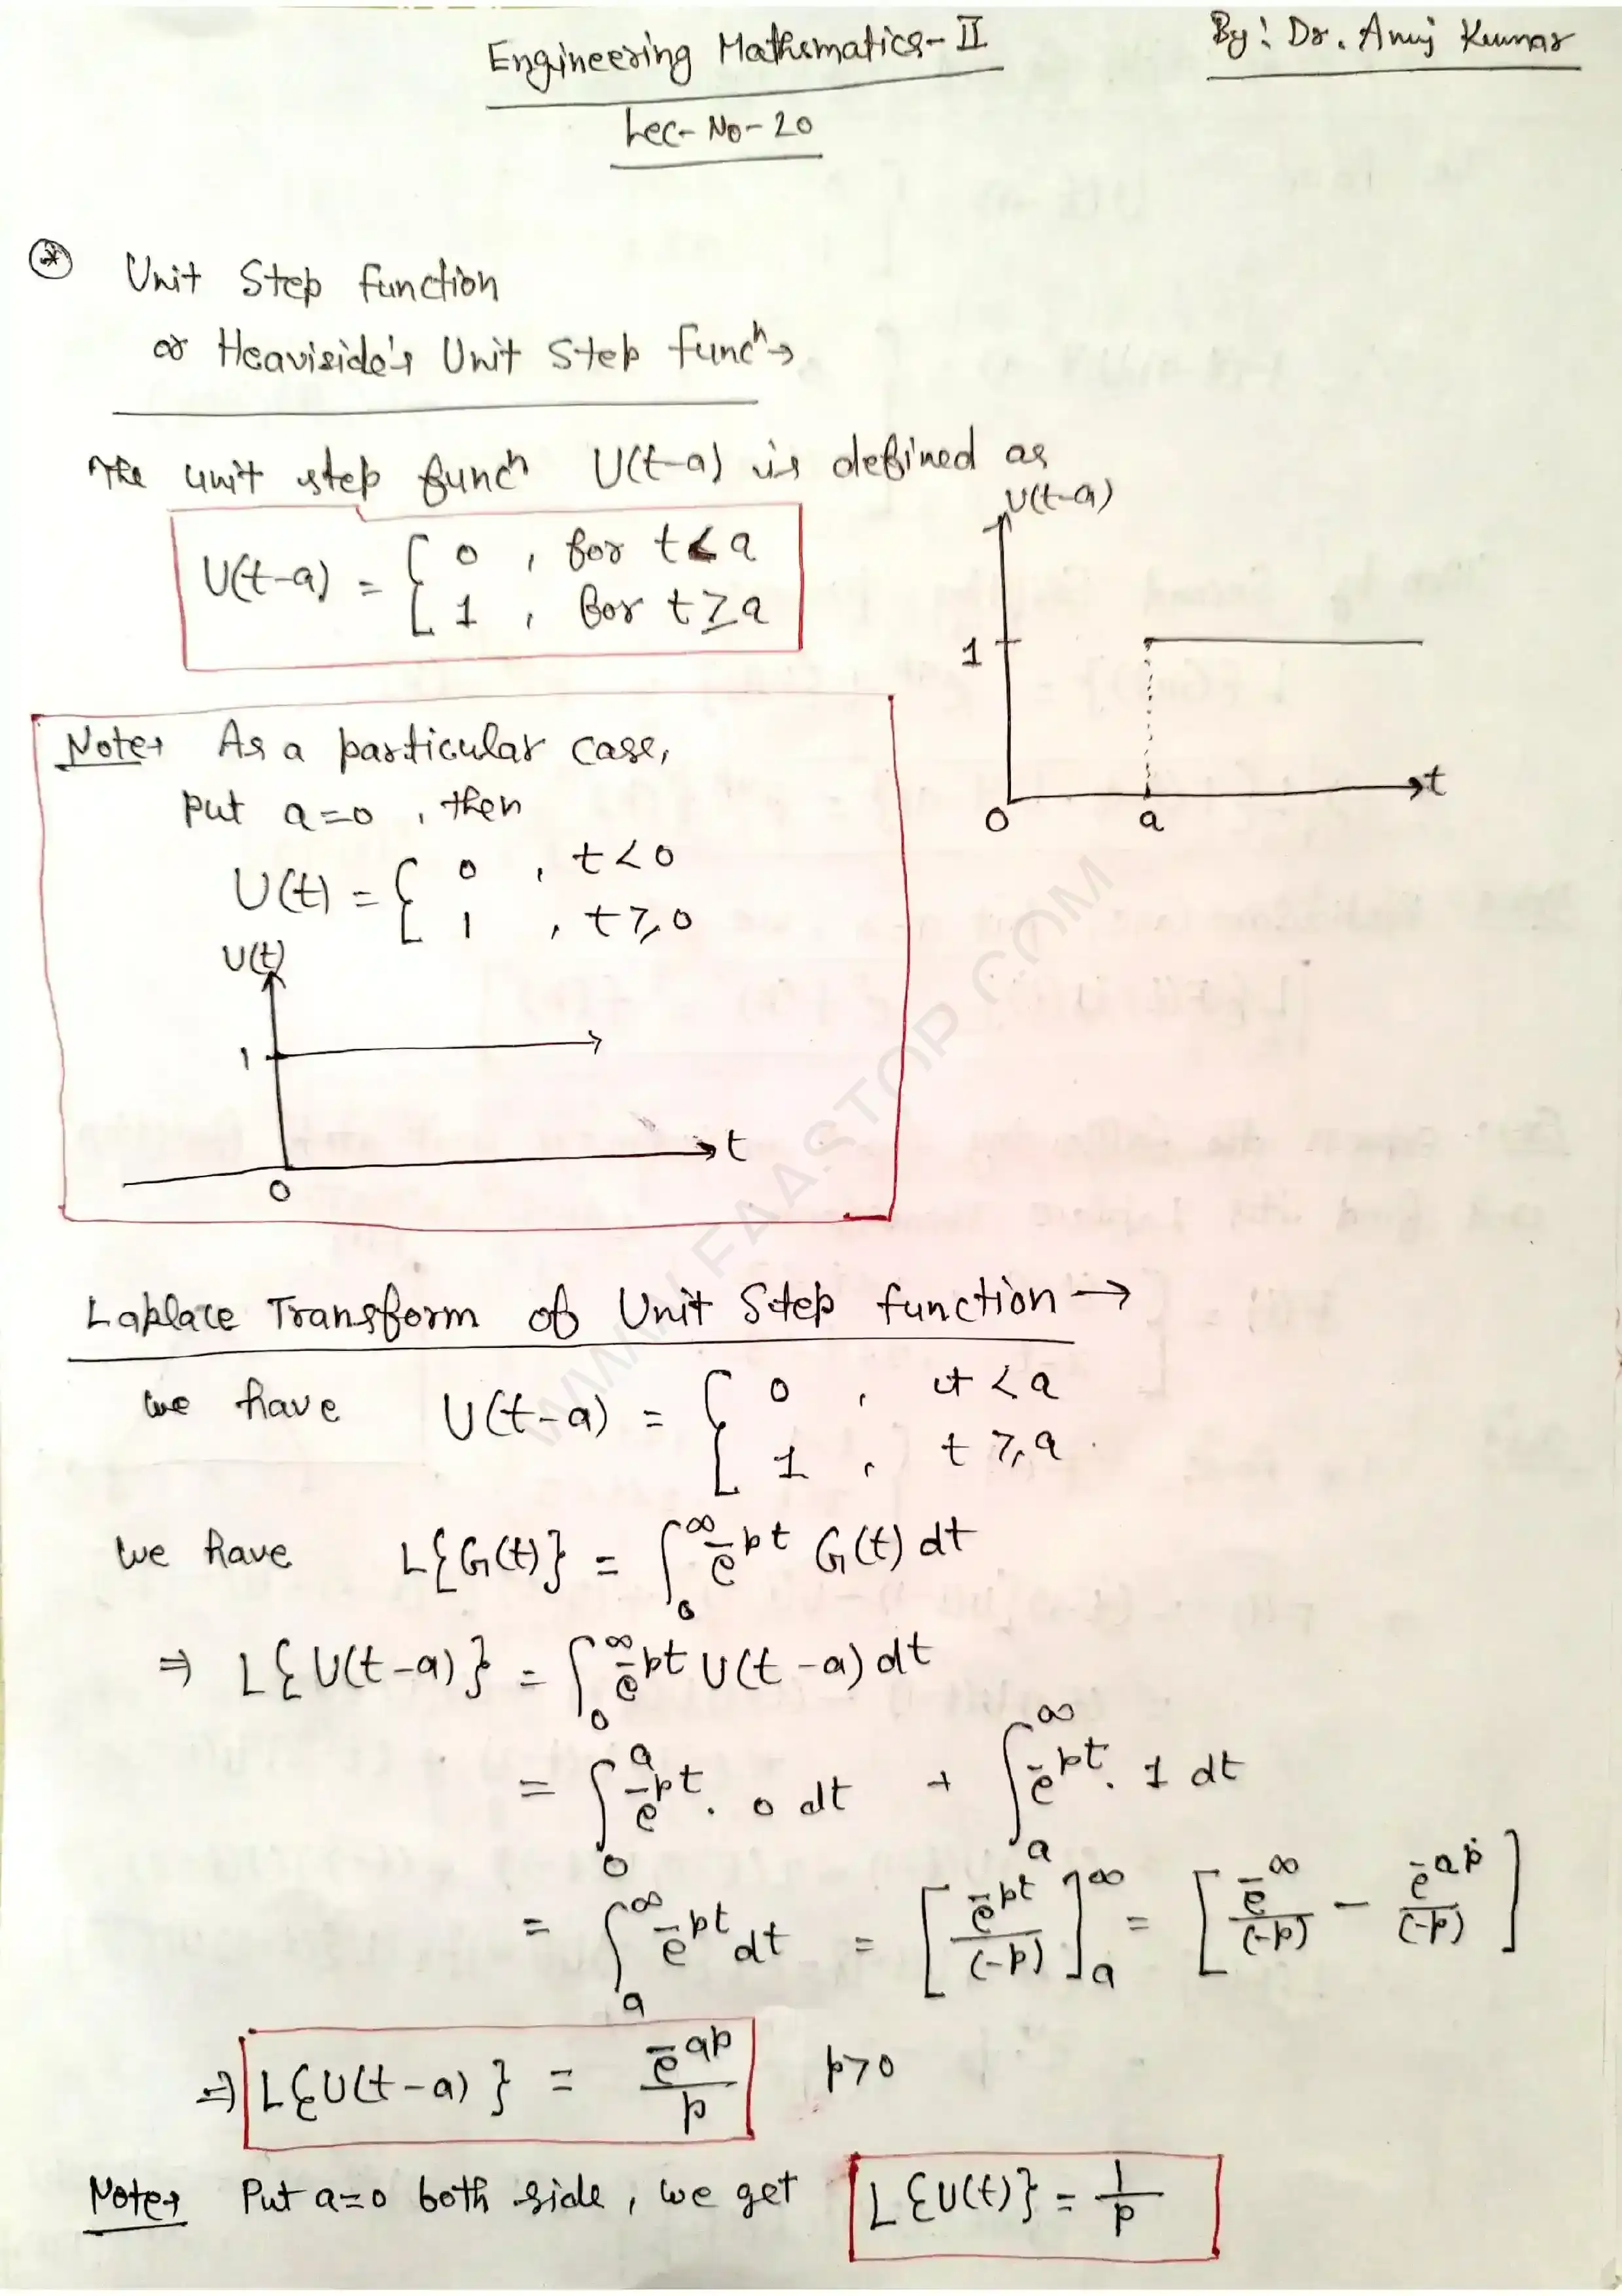 Engineering Mathematics-II
By: Dr. Anuj Kumar
Lec-No-20
* Unit Step function
or Heaviside's Unit Step funcⁿ→
The unit step funcⁿ U(t-a) is defined as
U(t-a) = { 0 , for t<a
1 , for t≥a
U(t-a)
1
0 a t
Note→ As a particular case,
Put a=0 , then
U(t) = { 0 , t<0
1 , t≥0
U(t)
1
0 t
Laplace Transform of Unit Step function→
we have U(t-a) = { 0 , t<a
1 , t≥a .
we have L{G(t)} = ∫₀^∞ e^{-pt} G(t) dt
⇒ L{U(t-a)} = ∫₀^∞ e^{-pt} U(t-a) dt
= ∫₀^a e^{-pt} . 0 dt + ∫_a^∞ e^{-pt} . 1 dt
= ∫_a^∞ e^{-pt} dt = [e^{-pt}/(-p)]_a^∞ = [e^{-∞}/(-p) - e^{-ap}/(-p)]
⇒ L{U(t-a)} = e^{-ap}/p p>0
Note→ Put a=0 both side, we get L{U(t)} = 1/p
WWW.FAASTOP.COM